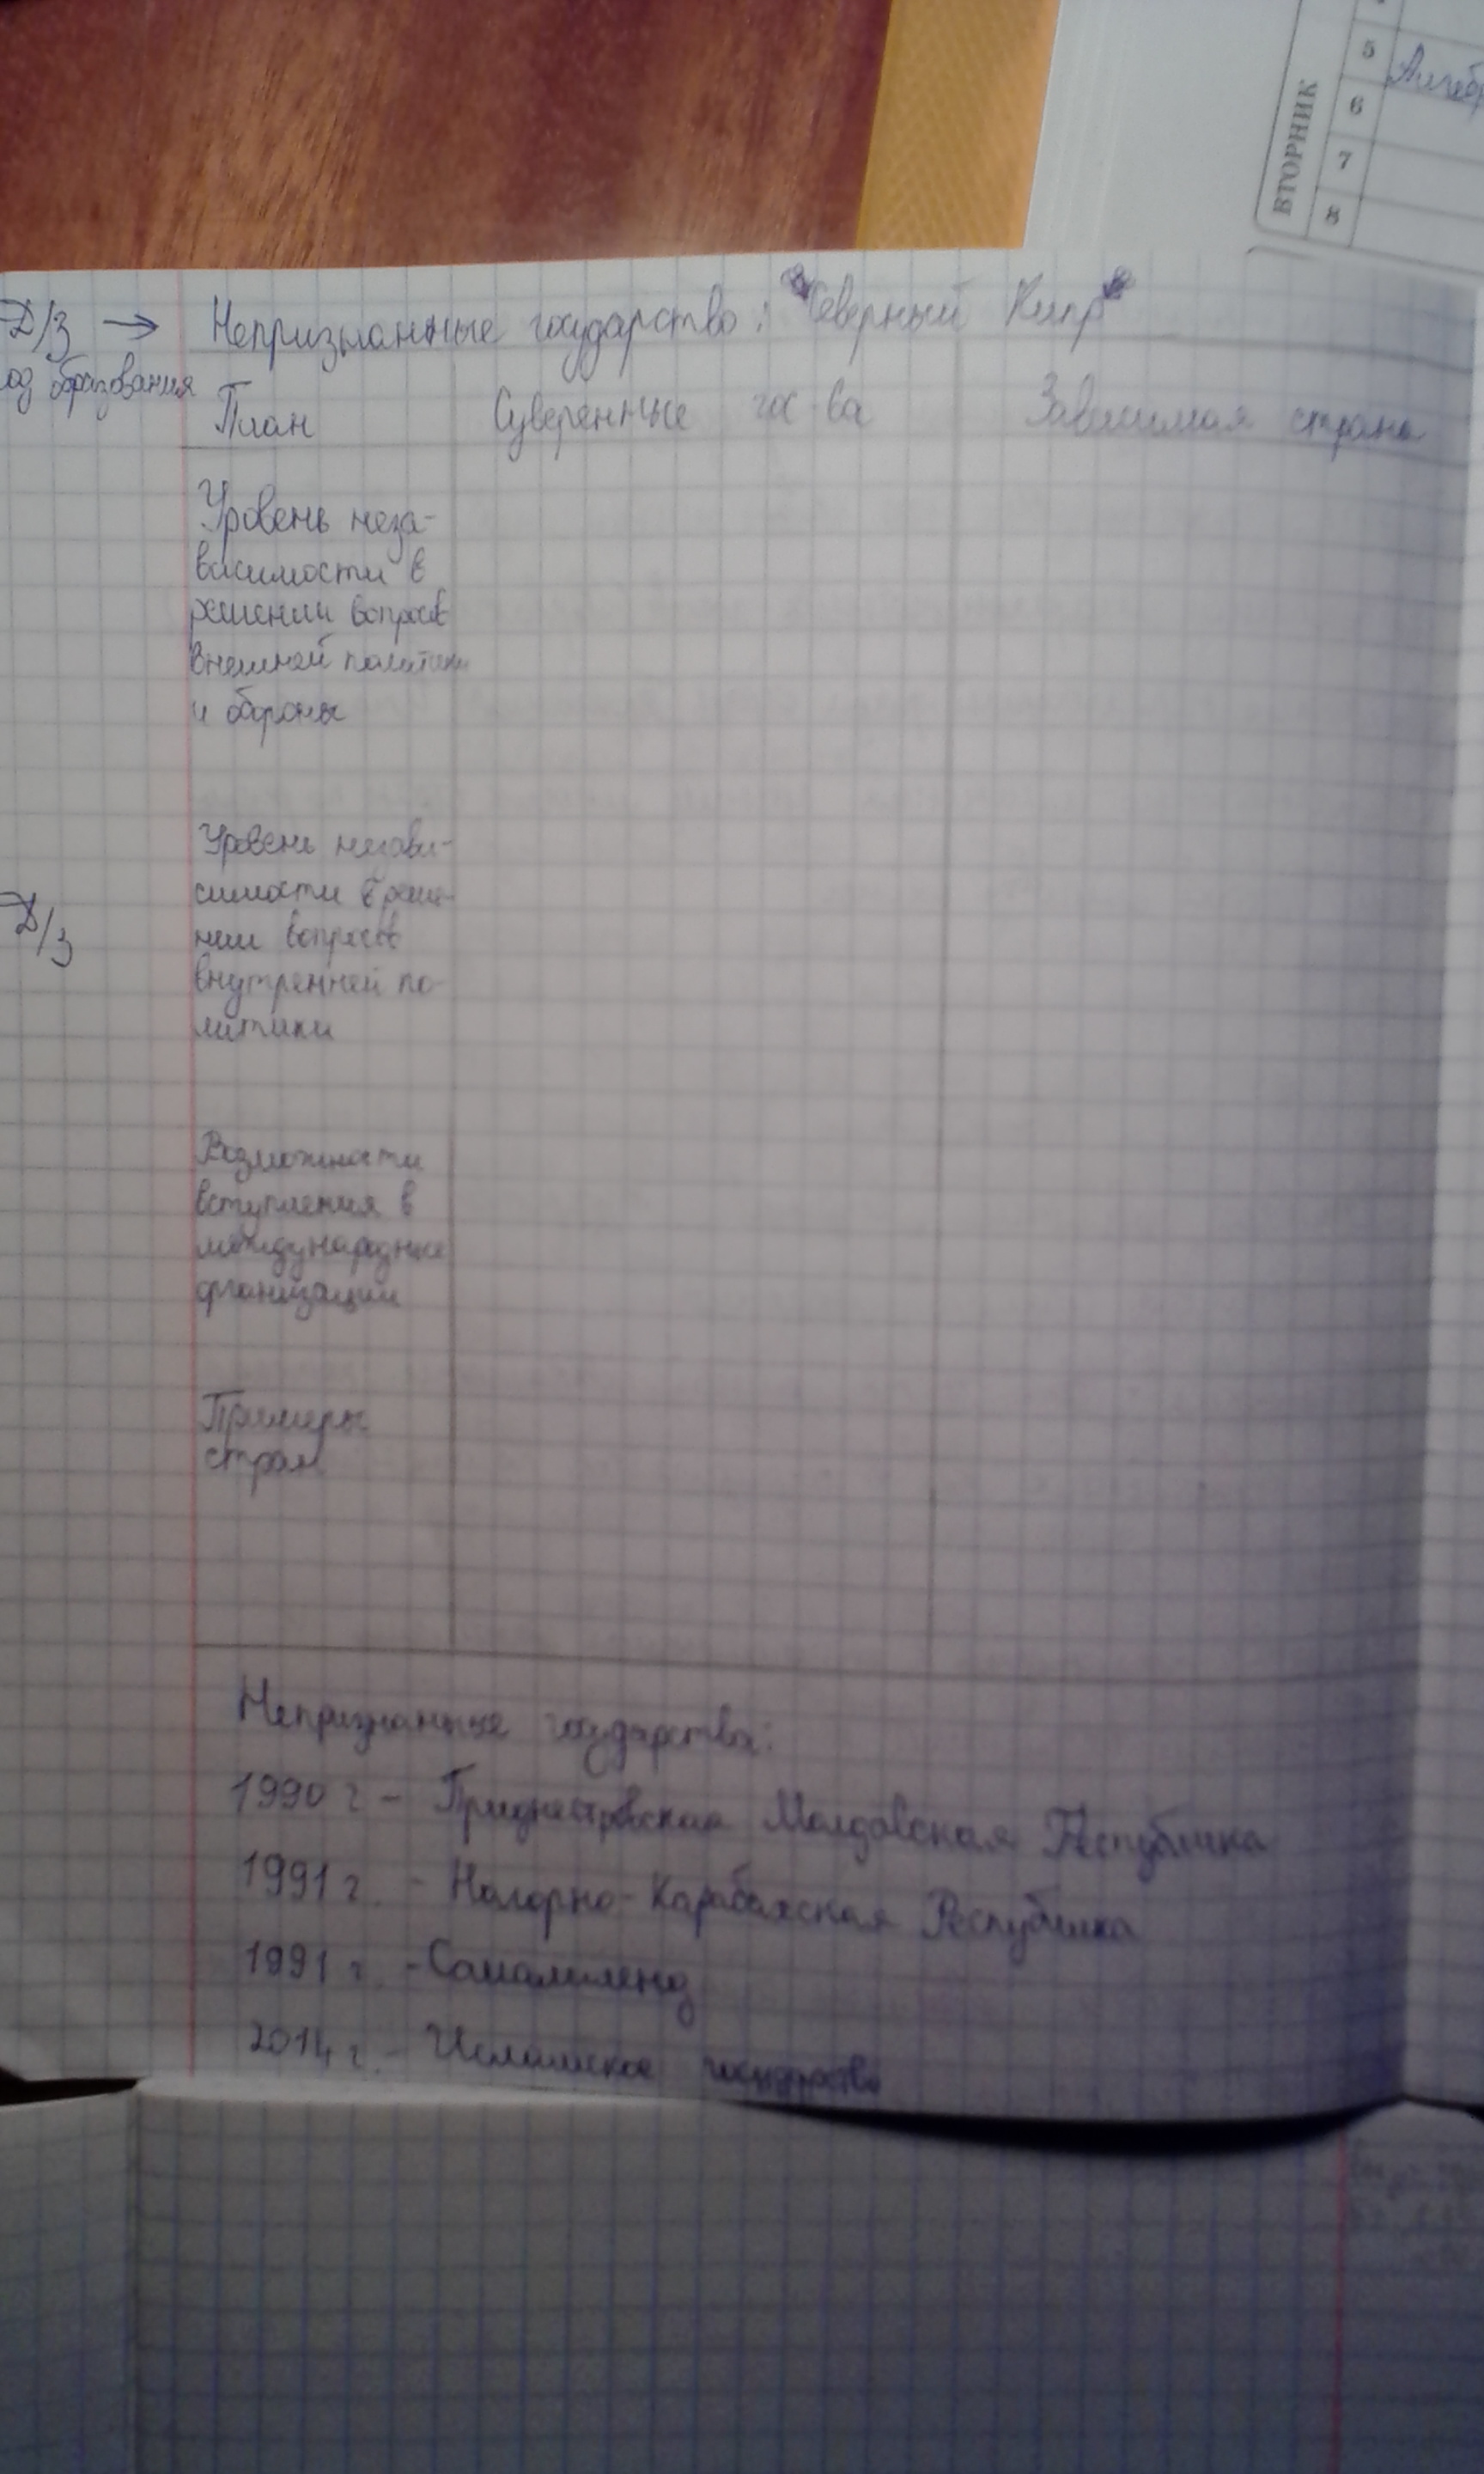 5 Алгеб
6
7
8
ВТОРНИК
Д/З → Непризнанные государство: "Северный Кипр"
од образования
План Суверенные гос-ва Зависимая страны
Уровень неза-
висимости в
решении вопросов
внешней политики
и обороны
Уровень незави-
симости в реше-
нии вопросов
внутренней по-
литики
Д/З
Возможности
вступления в
международные
организации
Примеры
стран
Непризнанные государства:
1990 г - Приднестровская Молдавская Республика
1991 г. - Нагорно-Карабахская Республика
1991 г. - Сомалиленд
2014 г. - Исламское государство